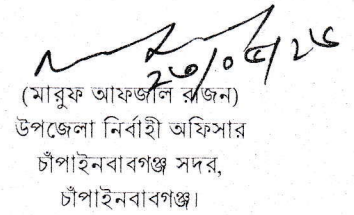 ২৩/০৫/২৫
(মারুফ আফজাল রাজন)
উপজেলা নির্বাহী অফিসার
চাঁপাইনবাবগঞ্জ সদর,
চাঁপাইনবাবগঞ্জ।